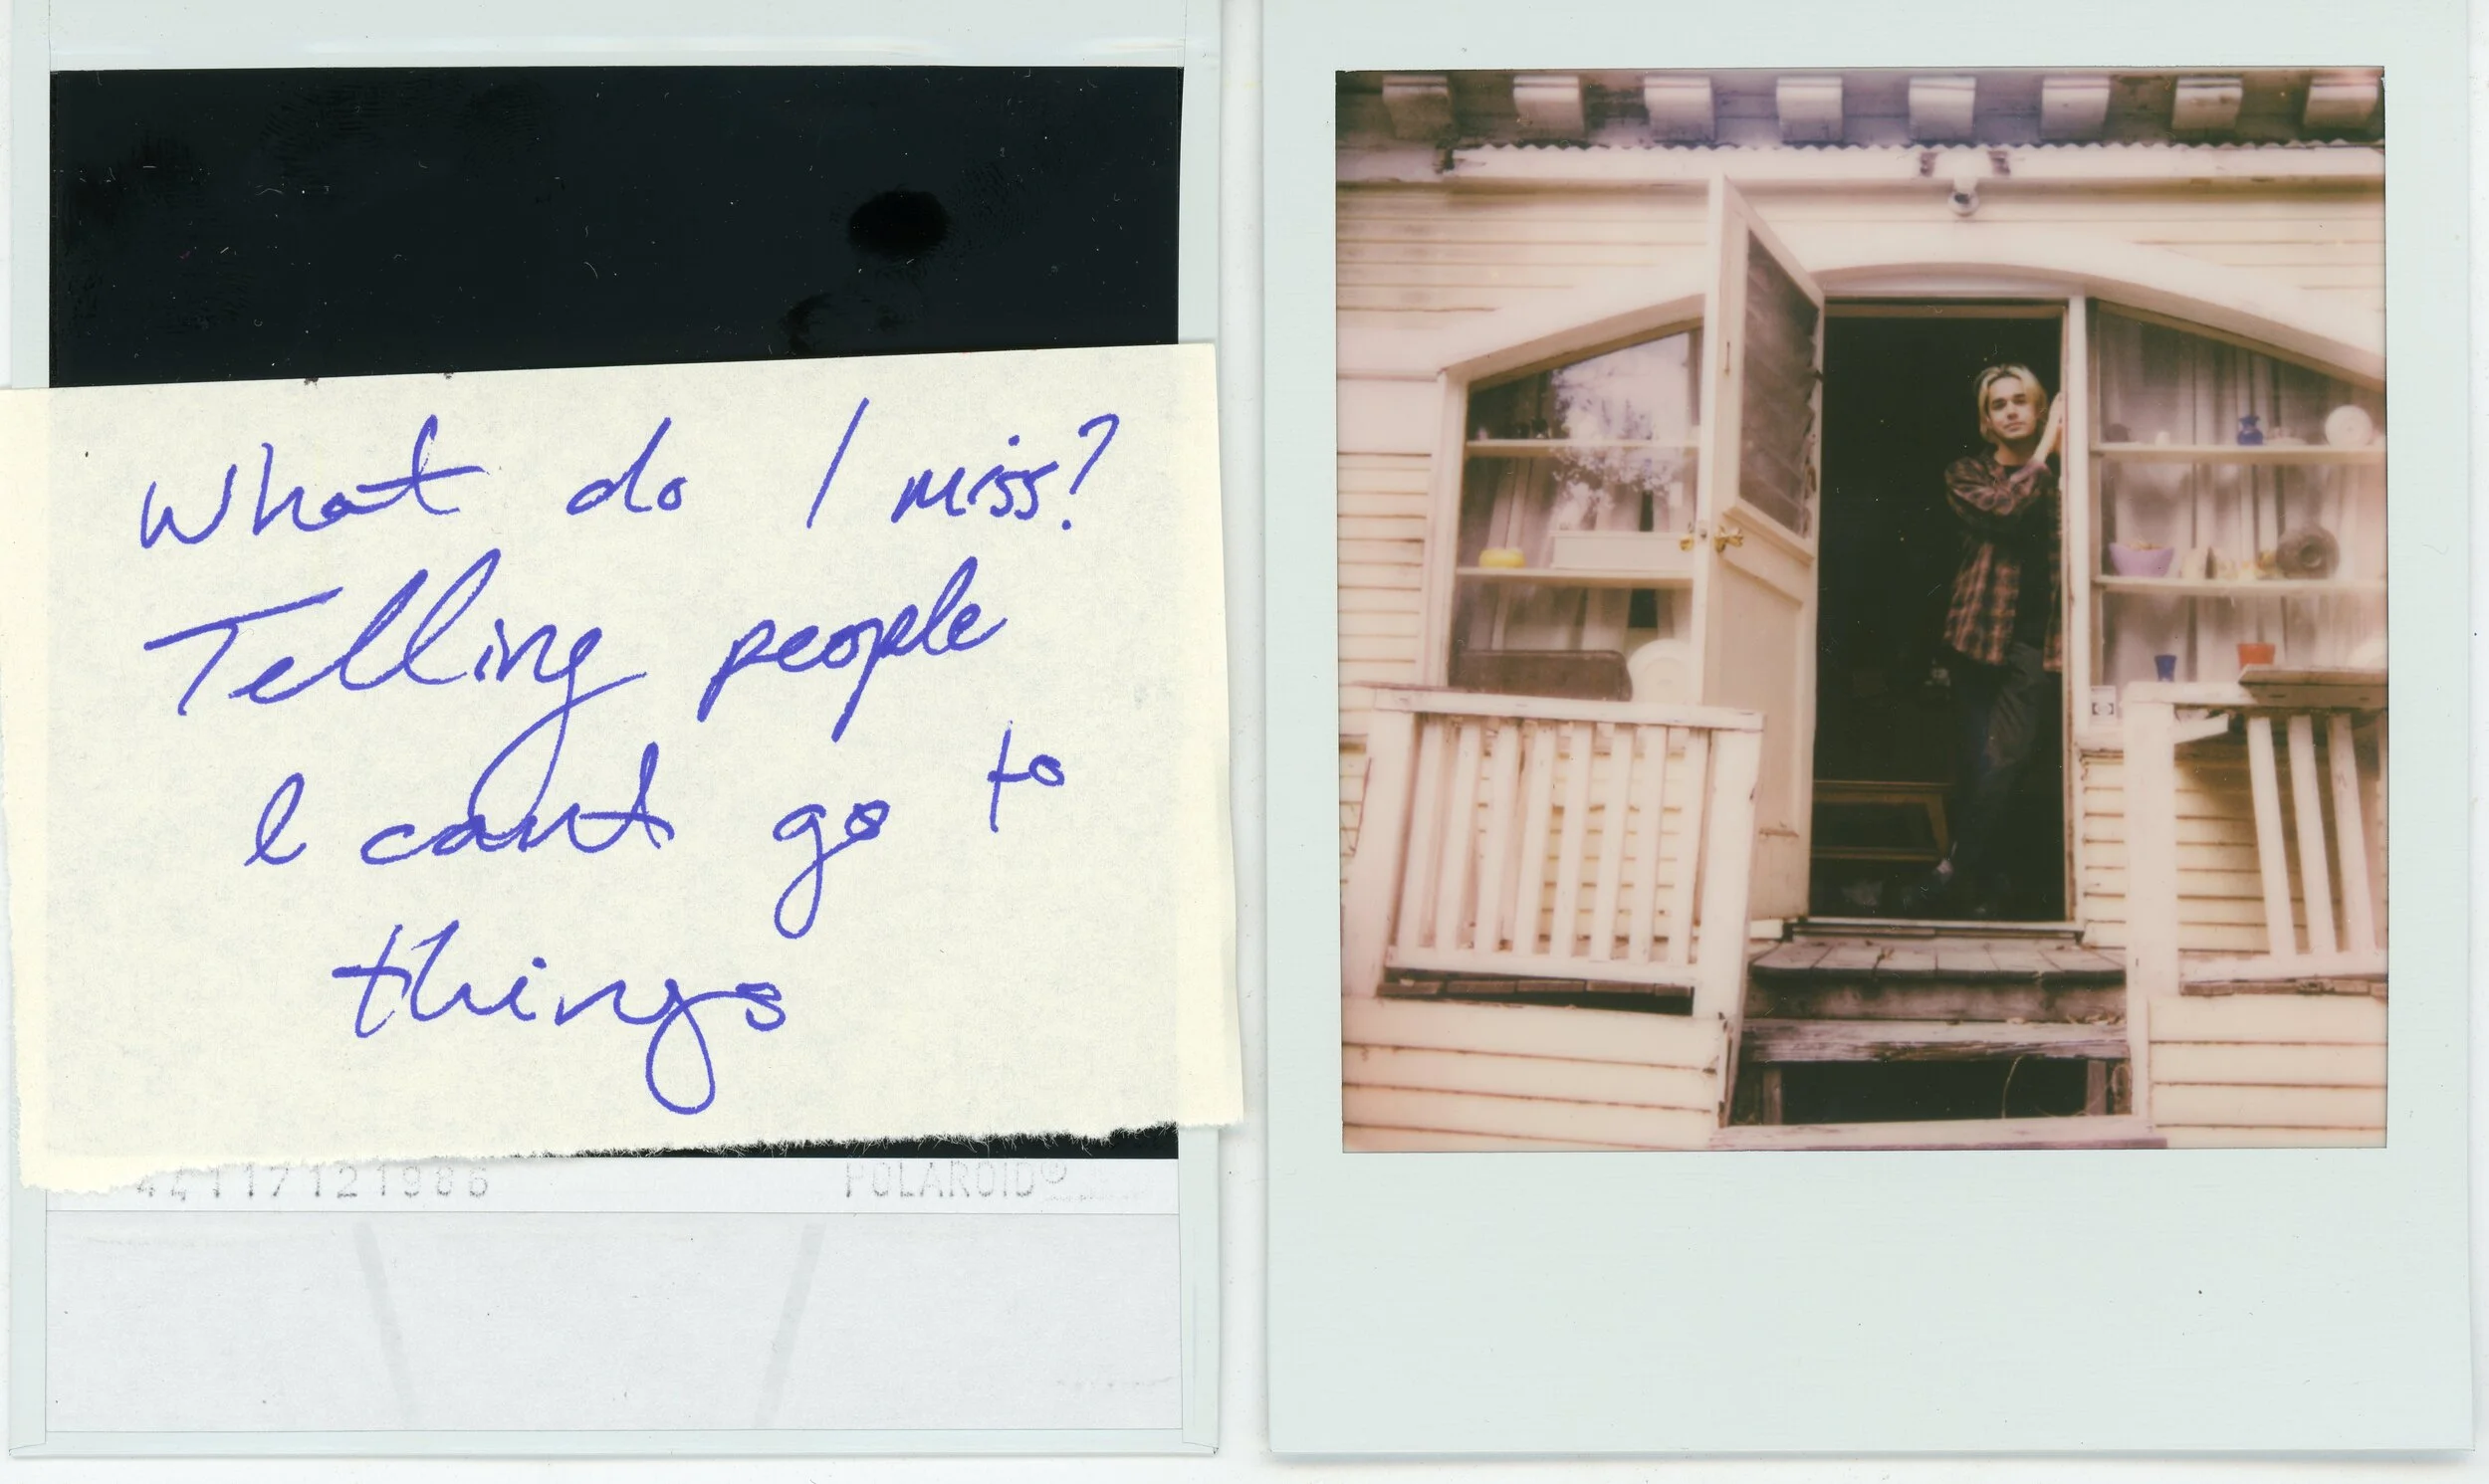 What do I miss?
Telling people
I cant go to
things
POLAROID®